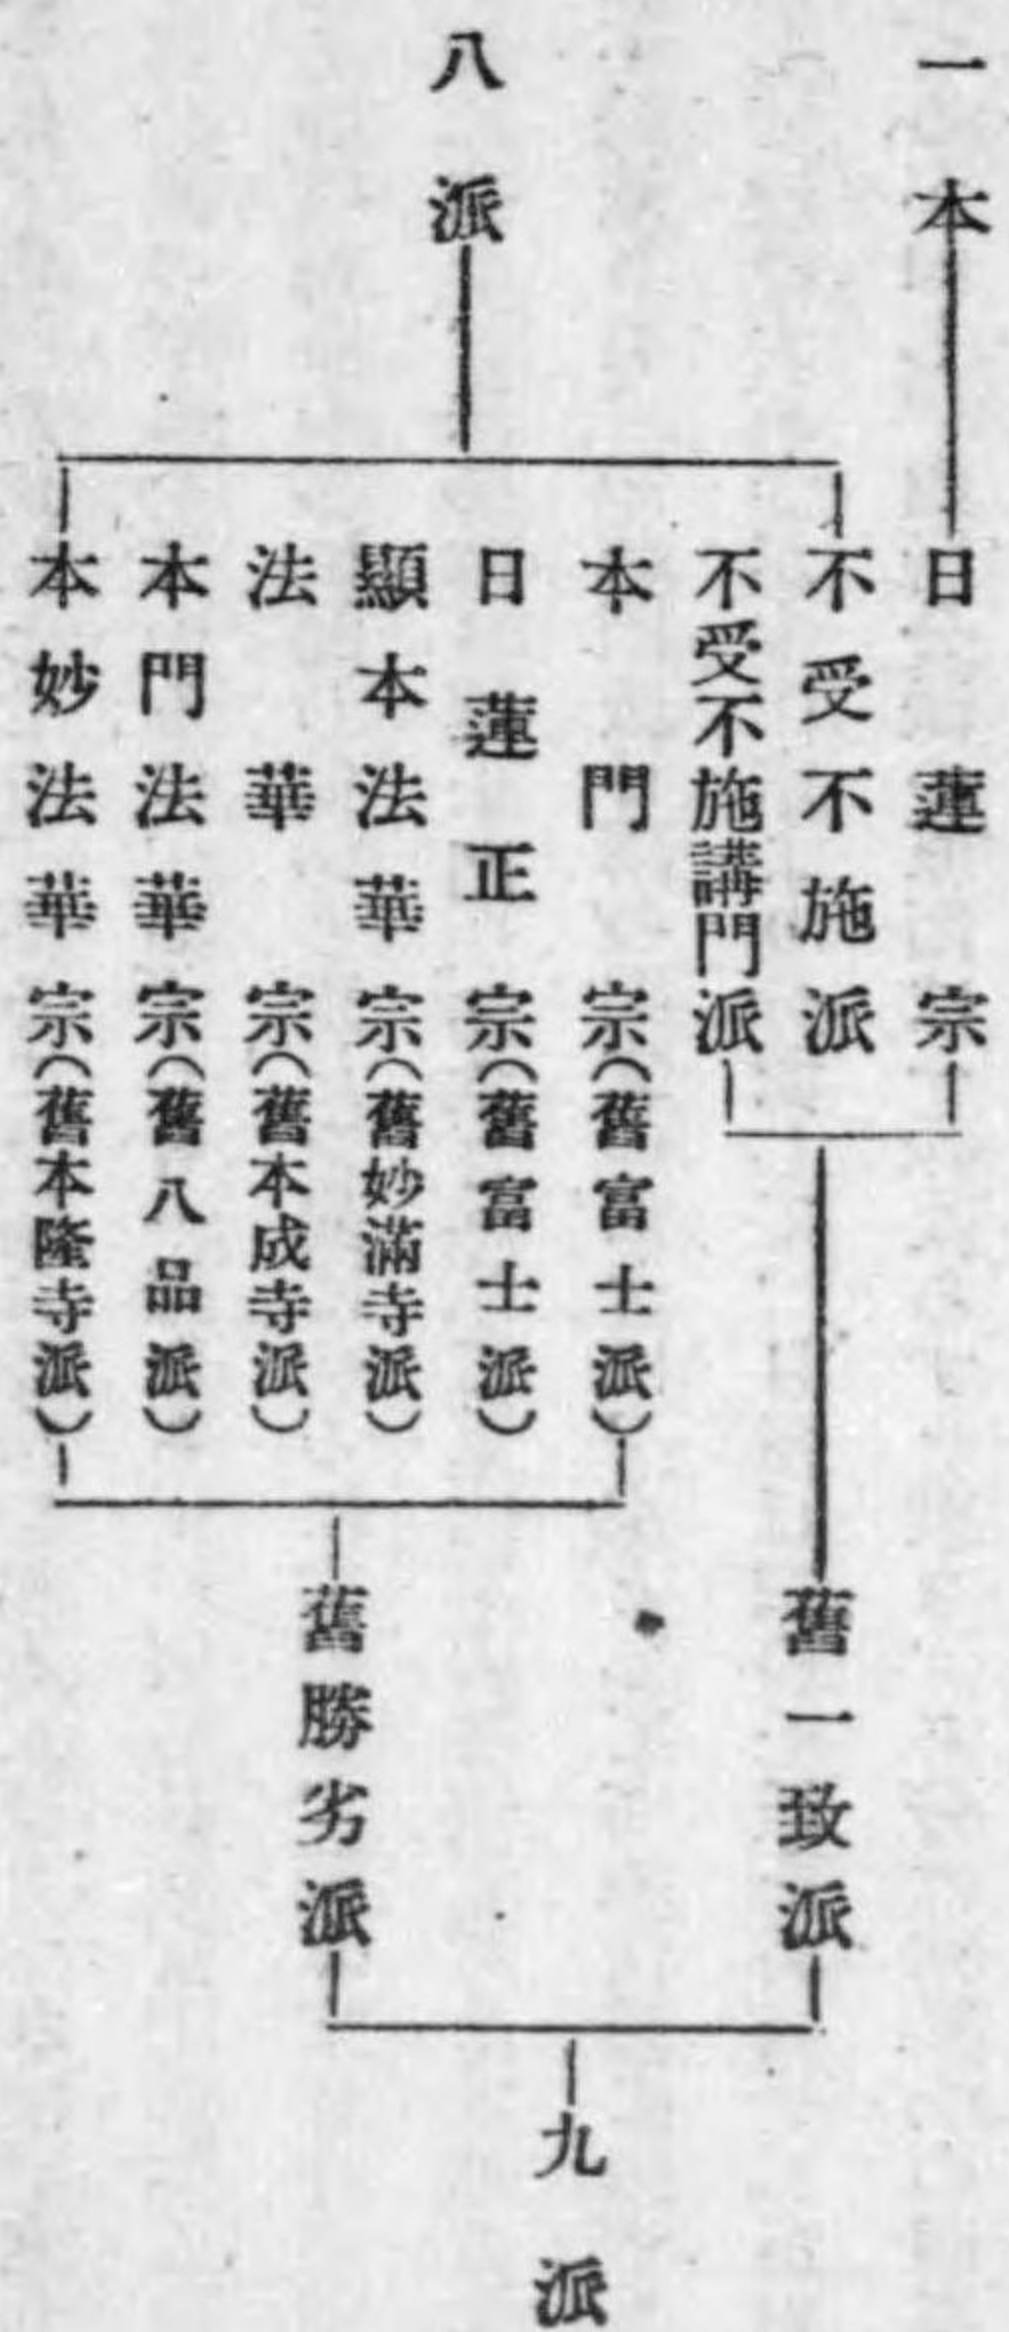 一本
日蓮宗
八派
不受不施派
不受不施講門派
本門宗（舊富士派）
日蓮正宗（舊富士派）
顯本法華宗（舊妙滿寺派）
法華宗（舊本成寺派）
本門法華宗（舊八品派）
本妙法華宗（舊本隆寺派）
舊一致派
舊勝劣派
九派